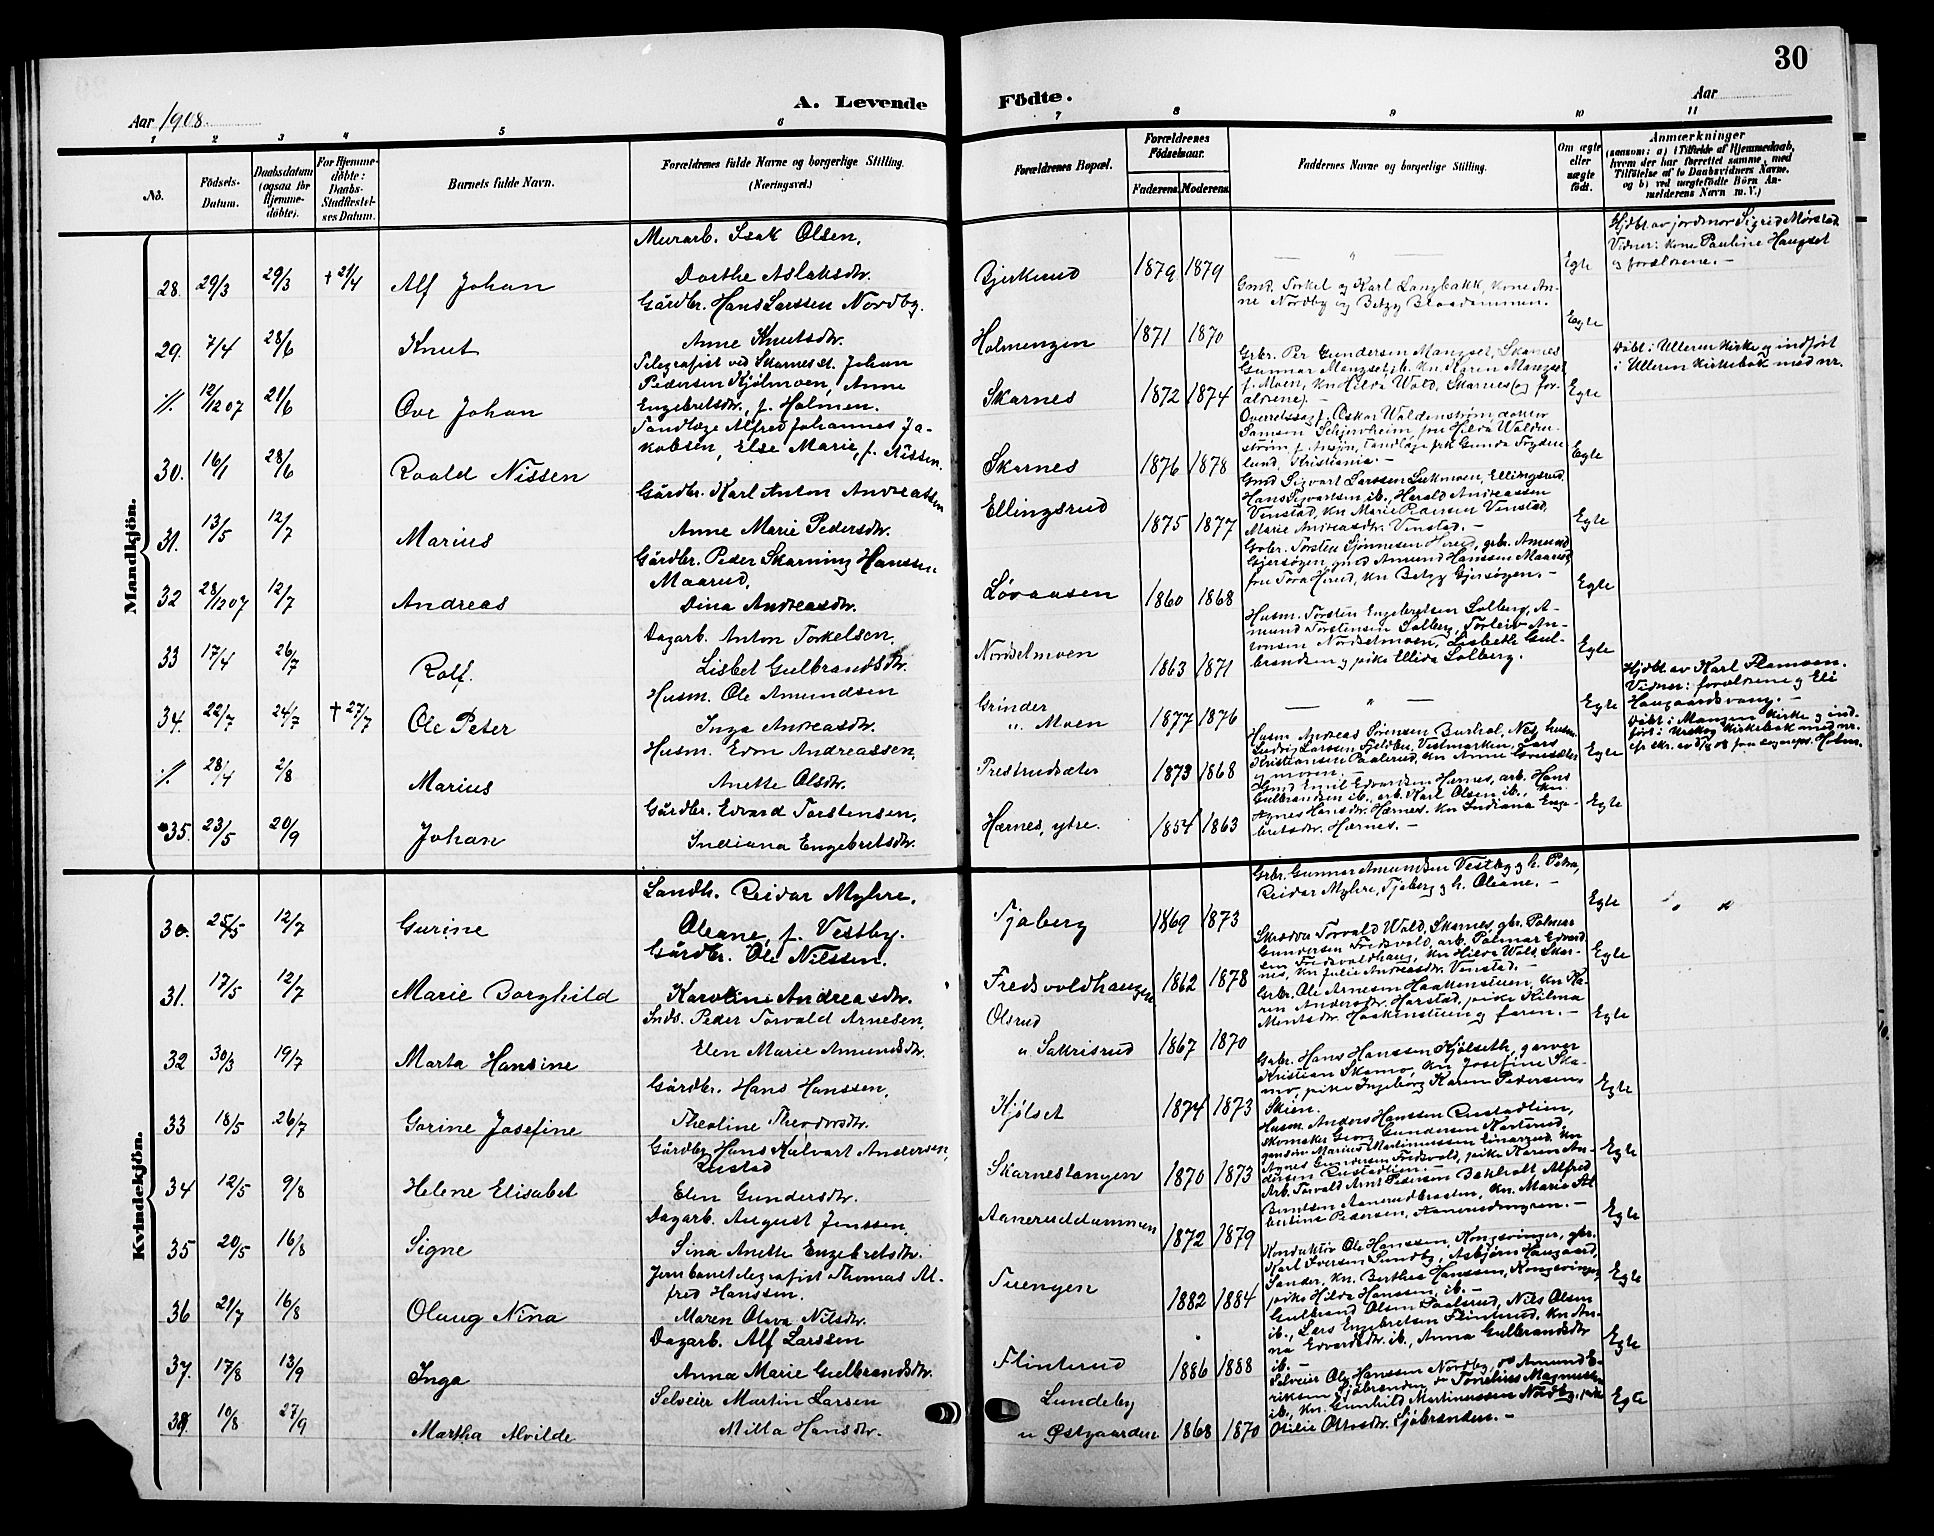 30
A. Levende Födte.
Aar 1908.
Aar
1 2 3 4 5 6 7 8 9 10 11
No.
Födsels-Datum.
Daabsdatum (ogsaa for Hjemme-döbte).
For Hjemme-döbte: Daabs-Stadfæstel-ses Datum.
Barnets fulde Navn.
Forældrenes fulde Navne og borgerlige Stilling. (Næringsvei.)
Forældrenes Bopæl.
Forældrenes Födselsaar.
Faderens. Moderens.
Faddernes Navne og borgerlige Stilling.
Om ægte eller uægte født.
Anmærkninger (saasom: a) i Tilfælde af Hjemmedaab, hvem der har forrettet samme, med Tilføielse af to Daabsvidners Navne. og b) ved uægtefödte Börn An-melderens Navn m. V.)
Mandkjön.
28. 29/3 29/3 + 21/4 Alf Johan
Murarb. Isak Olsen,
Dorthe Aslaksdtr.
Bjerkerud 1879 1879 — " — Egte
Hjdbt. av jordmor Sigrid Mørstad.
Vidner: kone Pauline Haugset
og forældrene. —
29. 7/4 28/6 Knut
Gårdbr. Hans Larssen Nordby.
Anne Knutsdtr.
Holmengen 1871 1870
Gmd. Torkel og Karl Langbakk, kone An-
ne Nordby og Betzy Braadammen.
Egte
//. 12/12 07 21/6 Ove Johan
Telegrafist ved Skarnes st. Johan
Pedersen Kjølmoen, Anne
Engebretsdtr., f. Holmen.
Skarnes 1872 1874
Grbr. Per Gundersen Mangset, Skarnes
Gunnar Mangset ib. kn. Karen Mangset
f. Moen, kn Hilda Wold, Skarnes (og for-
ældrene). —
Egte
Døbt i Ulleren Kirke og indført
i Ulleren Kirkebok med nr.
30. 16/1 28/6 Roald Nissen
Tandlæge Alfred Johannes Ja-
kobsen, Else Marie, f. Nissen.
Skarnes 1876 1878
Overretssagf. Oskar Waldenstrøm, doktor
Samsen Schjerveheim, fru Hilda Walden-
strøm, f.
lund, Kristiania. —
Egte
31. 13/5 12/7 Marius
Gårdbr. Karl Anton Andreassen
Anne Marie Pedersdtr.
Ellingsrud 1875 1877
Gmd Sigvart Larssen Ellingsrud,
Hans Sigvartsen ib., Harald Andreassen
Venstad, kn Marie Pedersen Venstad,
Marie Andreasdtr. Venstad. —
Egte
32 28/12 07 12/7 Andreas
Gårdbr. Peder Skarning Hanssen
Maarud,
Dina Andreasdtr.
Løvaasen 1860 1868
Grbr. Torsten Sjønnesen Herud, grbr. Amund
Gjersøyen, gmd Amund Hanssen Maarud,
fru Tora Herud, kn Betzy Gjersøyen. —
Egte
33 17/4 26/7 Rolf.
Dagarb. Anton Torkelsen,
Lisbet Gulbrandsdtr.
Nordselmoen 1863 1871
Husm. Torsten Engebretsen Solberg, A-
mund Torstensen Solberg, Torleiv An-
tonsen Nordselmoen, Lisbeth Gul-
brandsen og pike Ellida Solberg.
Egte
34. 22/7 24/7 + 27/7 Ole Peter
Husm. Ole Amundsen
Inga Andreasdtr.
Grinder
u. Moen 1877 1876 — " — Egte
Hjdbt. av Karl Flamoen.
Vidner: forældrene og Eli
Haugaardsvang. —
//. 28/4 2/8 Marius
Husm. Even Andreassen,
Anette Olsdtr.
Prestrudsæter 1873 1868
Husm Andreas Sørensen Burhol, Nes, husm.
Ludvig Larssen Fjeldbu, Vestmarken, Lars
Kristiansen Paalerud, kn Anne
Egte
Døbt i Mangen Kirke og ind-
ført i Urskog Kirkebok med nr.
35. 23/5 20/9 Johan
Gårdbr. Edvard Torstensen,
Indiana Engebretsdtr.
Hærnes, ytre. 1854 1863
Gmd Emil Edvardsen Hærnes, arb. Hans
Gulbrandsen ib., arb. Karl Olsen ib., kn.
Agnes Hansdtr. Hærnes. kn Indiana Enge-
bretsdtr. Hærnes. —
Egte
Kvindekjön.
30. 25/5 12/7 Gurine
Landh. Reidar Myhre,
Oleane, f. Vestby.
Tjaberg 1869 1873
Grbr. Gunnar Amundsen Vestby og h. Petra,
Reidar Myhre, Tjaberg og h. Oleane. —
Egte
31. 17/5 12/7 Marie Borghild
Gårdbr. Ole Nilssen.
Karoline Andreasdtr.
Fredsvoldhaugen 1862 1878
Skrædder Torvald Wold, Skarnes, gbr. Palmar
Gundersen Fredsvold, arb. Palmar Edvard-
sen Fredsvoldhaug, kn Hilda Wold, Skar-
nes, kn Julie Andreasdtr. Venstad. —
Egte
32 30/3 19/7 Marta Hansine
Inds. Peder Torvald Arnesen,
Elen Marie Amundsdtr.
Olsrud
u Sakrisrud 1867 1870
Grbr. Ole Arnesen Haakenstuen, kn Ka-
ren Andersdtr. Harstad, pike Hilma
Mentsdtr. Haakenstuen og faren. —
Egte
33 18/5 26/7 Gorine Josefine
Gårdbr. Hans Hanssen,
Theoline Theodorsdtr.
Kjølset 1874 1873
Grbr. Hans Hanssen Kjølseth, garver
Kristian Skamo, kn Josefine Ska-
mo, pike Ingeborg Karen Pedersen,
Skien.
Egte
34 12/5 9/8 Helene Elisabet
Gårdbr Hans Halvart Andersen,
Rustad
Elen Gundersdtr.
Skarnestangen 1870 1873
Husm. Anders Hanssen Rustadlien,
skomaker Georg Gundersen
Marius Martinussen Einarsrud, kn
Agnes Gundersen Fredsvold, pike Karen An-
dersen Rustadlien. —
Egte
35 20/5 16/8 Signe
Dagarb. August Jenssen,
Sina Anette Engebretsdtr.
Aaneruddammen 1872 1879
Arb. Torvald Arnt Pedersen Bakholt Alfred
Berntsen Aanerudbraaten, kn. Maria Al-
bertine Pedersen,
Egte
36 21/7 16/8 Olaug Nina
Jernbanetelegrafist Thomas Al-
fred Hanssen.
Maren Olava Nilsdtr.
Tuengen 1882 1884
Konduktør Ole Hanssen, Kongsvinger, gbr.
Karl Iversen Sundby, Asbjørn Haugaard,
Sander, kn. Berthea Hanssen, Kongsvinger,
pike Hilda Hanssen, ib. —
Egte
37. 17/8 13/9 Inga
Dagarb. Alf Larssen
Anna Marie Gulbrandsdtr.
Flinterud 1886 1888
Gulbrand Olsen Paalsrud, Nils Olsen
ib., Lars Engebretsen Flinterud, kn An-
na Edvardsdtr. ib., Anna Gulbrandsdtr
ib. —
Egte
38. 10/8 27/9 Martha Alvilde
Selveier Martin Larsen
Milla Hansdtr.
Lundeby
u Østgaarden 1868 1870
Selveier Ole Hanssen Nordby, do Amund E-
riksen Sjøbranden do Tonelius Magnussen
ib., kn. Gunhild Martinussen Nordby, pike
Otilie Ottosdtr. Sjøbranden. —
Egte